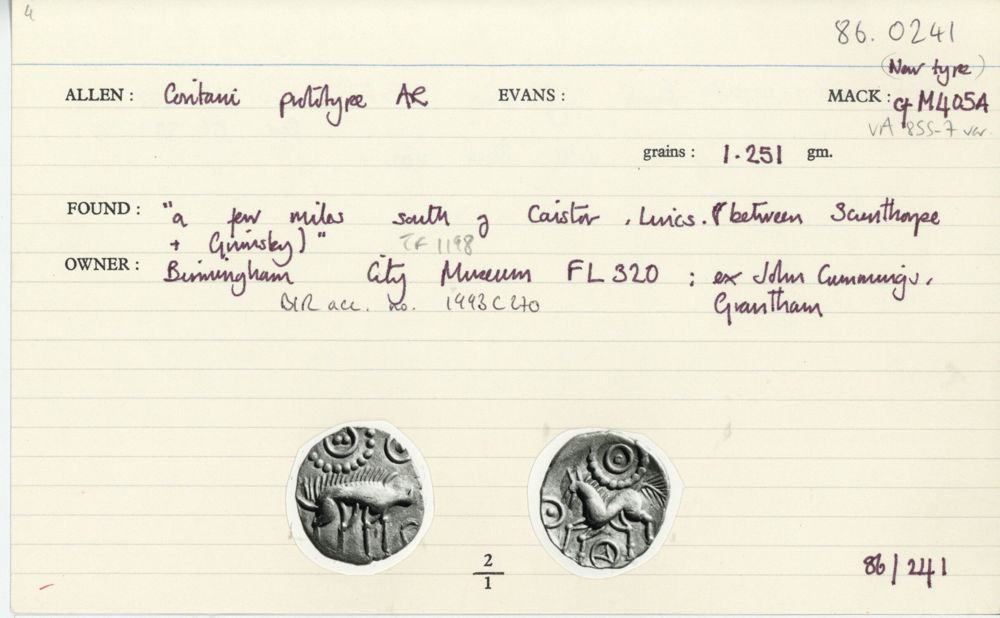 4
86. 0241
(New type)
ALLEN : Coritani prototype AR EVANS : MACK : cf M405A
VA 855-7 var
grains : 1.251 gm.
FOUND : "a few miles south of Caistor, Lincs. (between Scunthorpe
+ Grimsby)" TF 1198
OWNER : Birmingham City Museum FL 320 ; ex John Cummings,
Grantham
BIR acc. no. 1993C270
2
1
86/241